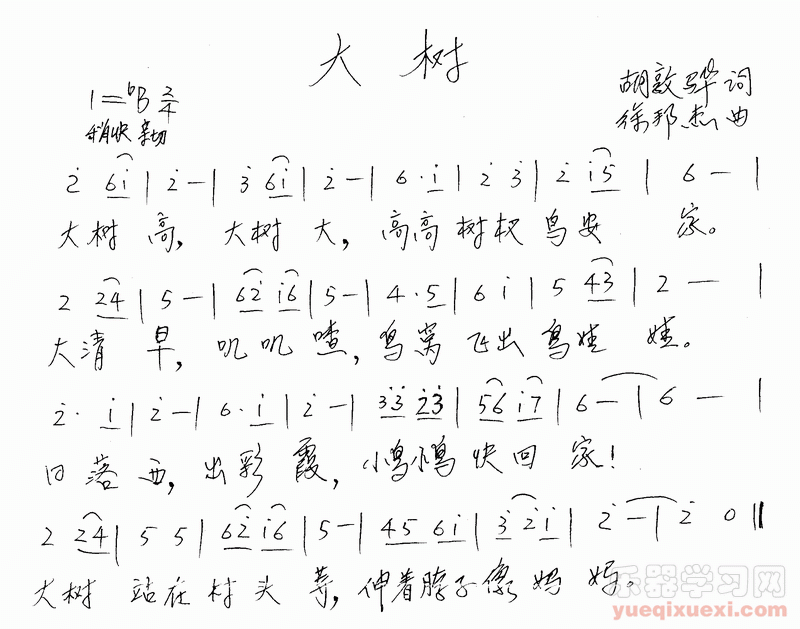 大 树
1=♭B 2/4
胡敦骅 词
稍快 亲切
徐邦杰 曲
2̇ 6i̇ | 2̇ - | 3̇ 6i̇ | 2̇ - | 6· i̇ | 2̇ 3̇ | 2̇ i̇5 | 6 - |
大树 高, 大树 大, 高高 树杈 鸟安 家。
2 24 | 5 - | 62̇ i̇6 | 5 - | 4· 5 | 6 i | 5 43 | 2 - |
大清 早, 叽叽 喳, 鸟窝 飞出 鸟娃 娃。
2̇· i̇ | 2̇ - | 6· i̇ | 2̇ - | 3̇3̇ 2̇3̇ | 56 i̇7 | 6 - | 6 - |
日落 西, 出彩 霞, 小鸟小鸟 快回 家!
2 24 | 5 5 | 62̇ i̇6 | 5 - | 45 6i | 3̇ 2̇i | 2̇ - | 2̇ 0 ‖
大树 站在 村头 等, 伸着脖子像妈 妈。
乐器学习网
yueqixuexi.com